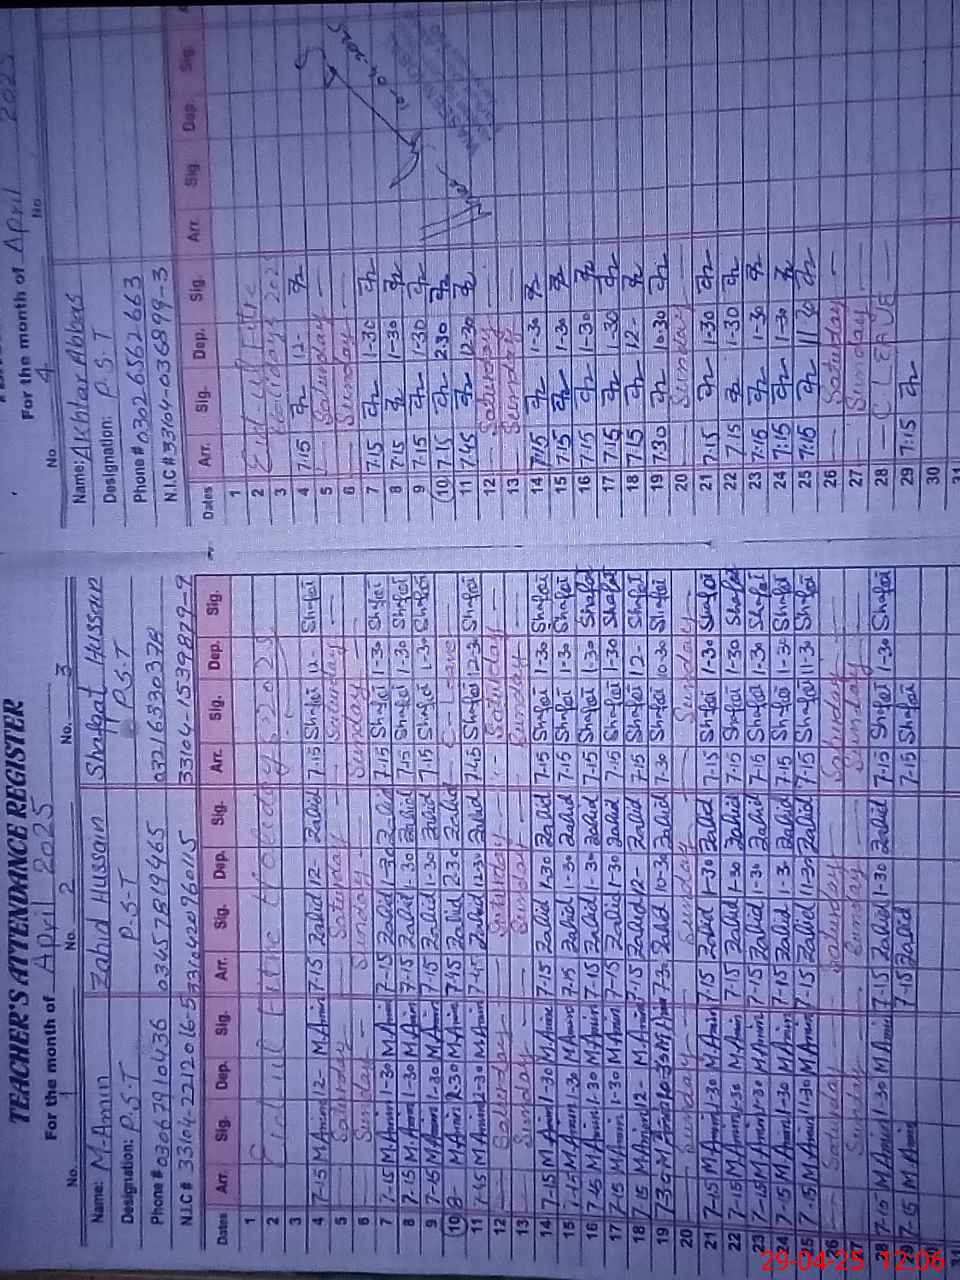 TEACHER'S ATTENDANCE REGISTER
For the month of April 2025
No. 1 No. 2 No. 3
Name: M-Amin Zahid Hussain Shafqat Hussain
Designation: P.S.T P.S.T P.S.T
Phone # 03067910436 03457819465 03216330378
N.I.C # 33104-2212016-5 3310420960115 33104-1539829-9
Dates Arr. Sig. Dep. Sig. Arr. Sig. Dep. Sig. Arr. Sig. Dep. Sig.
1
2 Eid ul Fitre Holidays 2025
3
4 7-15 M Amin 12- M Amin 7-15 Zahid 12- Zahid 7-15 Shafqat 12- Shafqat
5 Saturday Saturday Saturday
6 Sunday Sunday Sunday
7 7-15 M Amin 1-30 M Amin 7-15 Zahid 1-30 Zahid 7-15 Shafqat 1-30 Shafqat
8 7-15 M Amin 1-30 M Amin 7-15 Zahid 1-30 Zahid 7-15 Shafqat 1-30 Shafqat
9 7-15 M Amin 1-30 M Amin 7-15 Zahid 1-30 Zahid 7-15 Shafqat 1-30 Shafqat
10 8- M Amin 2-30 M Amin 7-15 Zahid 2-30 Zahid C- Leave
11 7-45 M Amin 12-30 M Amin 7-45 Zahid 12-30 Zahid 7-45 Shafqat 12-30 Shafqat
12 Saturday Saturday Saturday
13 Sunday Sunday Sunday
14 7-15 M Amin 1-30 M Amin 7-15 Zahid 1-30 Zahid 7-15 Shafqat 1-30 Shafqat
15 7-15 M Amin 1-30 M Amin 7-15 Zahid 1-30 Zahid 7-15 Shafqat 1-30 Shafqat
16 7-15 M Amin 1-30 M Amin 7-15 Zahid 1-30 Zahid 7-15 Shafqat 1-30 Shafqat
17 7-15 M Amin 1-30 M Amin 7-15 Zahid 1-30 Zahid 7-15 Shafqat 1-30 Shafqat
18 7-15 M Amin 12- M Amin 7-15 Zahid 12- Zahid 7-15 Shafqat 12- Shafqat
19 7-30 M Amin 10-30 M Amin 7-30 Zahid 10-30 Zahid 7-30 Shafqat 10-30 Shafqat
20 Sunday Sunday Sunday
21 7-15 M Amin 1-30 M Amin 7-15 Zahid 1-30 Zahid 7-15 Shafqat 1-30 Shafqat
22 7-15 M Amin 1-30 M Amin 7-15 Zahid 1-30 Zahid 7-15 Shafqat 1-30 Shafqat
23 7-15 M Amin 1-30 M Amin 7-15 Zahid 1-30 Zahid 7-15 Shafqat 1-30 Shafqat
24 7-15 M Amin 1-30 M Amin 7-15 Zahid 1-30 Zahid 7-15 Shafqat 1-30 Shafqat
25 7-15 M Amin 11-30 M Amin 7-15 Zahid 11-30 Zahid 7-15 Shafqat 11-30 Shafqat
26 Saturday Saturday Saturday
27 Sunday Sunday Sunday
28 7-15 M Amin 1-30 M Amin 7-15 Zahid 1-30 Zahid 7-15 Shafqat 1-30 Shafqat
29 7-15 M Amin 7-15 Zahid 7-15 Shafqat
30
31
For the month of April 2025
No. 4 No.
Name: Akhtar Abbas
Designation: P.S.T
Phone # 03026562663
N.I.C # 33104-036899-3
Dates Arr. Sig. Dep. Sig. Arr. Sig. Dep. Sig.
1
2 Eid-ul Fitre
3 Holidays 2025
4 7:15 12-
5 Saturday
6 Sunday
7 7.15 1-30
8 7.15 1-30
9 7.15 1-30
10 7.15 2.30
11 7.45 12-30
12 Saturday
13 Sunday
14 7.15 1-30
15 7.15 1-30
16 7.15 1-30
17 7.15 1-30
18 7.15 12-
19 7.30 10-30
20 Sunday
21 7.15 1-30
22 7.15 1-30
23 7:15 1-30
24 7:15 1-30
25 7:15 11 30
26 Saturday
27 Sunday
28 C-LEAVE
29 7:15
30
31
29-04-25 12:06